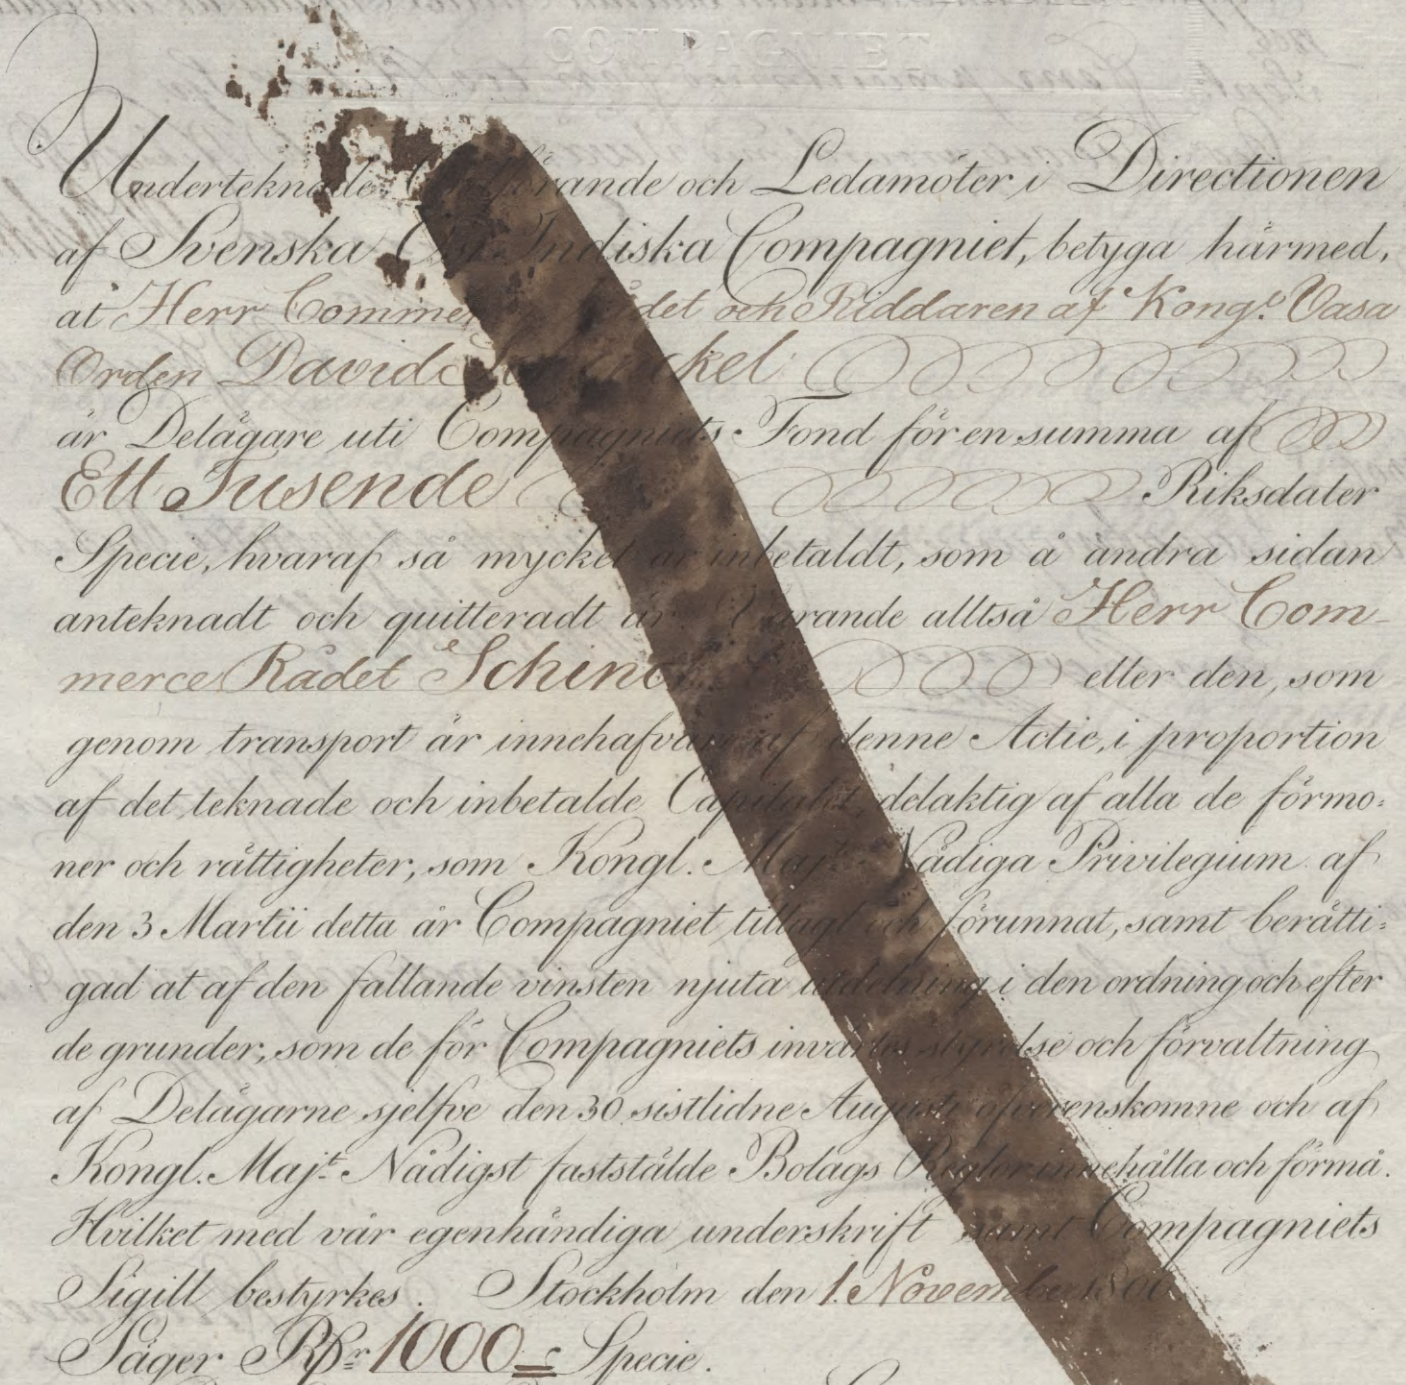 COMPAGNIET
Underteknade: Ordförande och Ledamöter i Directionen
af Svenska Ost-Indiska Compagniet, betyga härmed,
at Herr Commerce Rådet och Riddaren af Kongl. Vasa
Orden David Schinckel
är Delägare uti Compagniets Fond för en summa af
Ett Tusende Riksdaler
Specie, hvaraf så mycket är inbetaldt, som å andra sidan
anteknadt och quitteradt är. Varande alltså Herr Com-
merce Rådet Schinckel eller den, som
genom transport är innehafvare af denne Actie, i proportion
af det teknade och inbetalde Capitalet, delaktig af alla de förmo:
ner och rättigheter, som Kongl. Majts. Nådiga Privilegium af
den 3 Martii detta år Compagniet tillagt och förunnat, samt berätti:
gad at af den fallande vinsten njuta utdelning i den ordning och efter
de grunder, som de för Compagniets invärtes styrelse och förvaltning
af Delägarne sjelfve den 30 sistlidne Augusti öfverenskomne och af
Kongl. Majt. Nådigst faststälde Bolags Reglor innehålla och förmå.
Hvilket med vår egenhändiga underskrift samt Compagniets
Sigill bestyrkes. Stockholm den 1. November 1806
Säger Rdr 1000 = Specie.